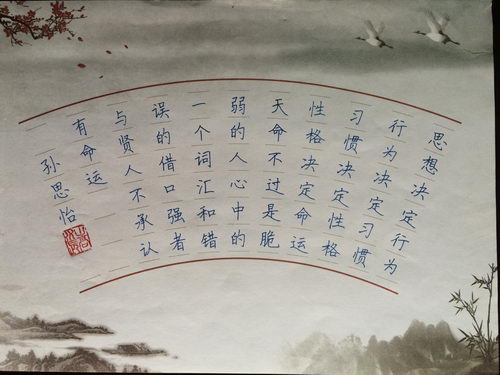 思想决定行为
行为决定习惯
习惯决定性格
性格决定命运
天命不过是脆
弱的人心中的
一个词汇和错
误的借口强者
与贤人不承认
有命运
孙思怡